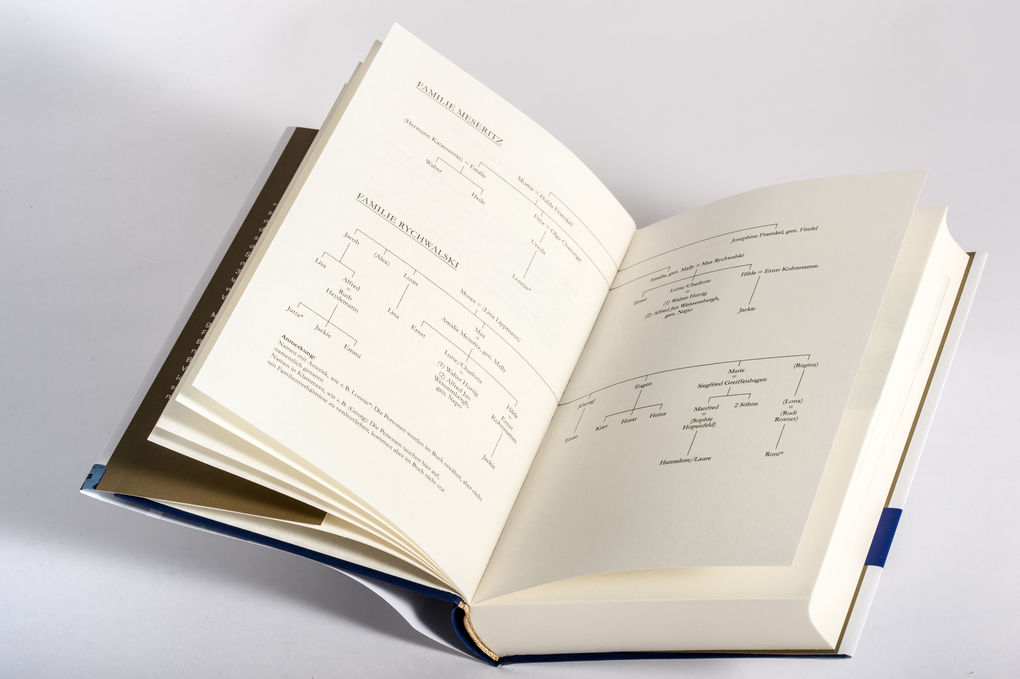 FAMILIE MESERITZ
(Hermann Karzenstein) = Emilie
Walter
Hede
Moritz = Hulda Fraenkel
Fritz = Olga
Ursula
Lonnie*
FAMILIE RYCHWALSKI
Jacob
Lisa
Alfred
=
Ruth
Heydemann
Jutta*
Jackie
Emmi
(Alex)
Louis
Lina
Moses = (Lana Lippmann)
Max
=
Amalie Meseritz, gen. Mally
Ernst
Lotte/Charlotte
=
(1) Walter Hurtig
(2) Alfred Jan
Weissembergh,
gen. Nepo
Hilde
=
Ernst
Kohnstamm
Jackie
Anmerkung:
Namen mit Asterisk, wie z. B. Lonnie*: Die Personen werden im Buch erwähnt, aber nicht
namentlich genannt.
Namen in Klammern, wie z. B. (Georg): Die Personen tauchen hier auf,
um Familienverhältnisse zu verdeutlichen, kommen aber im Buch nicht vor
Josephine Fraenkel, gen. Findel
Amalie, gen. Mally = Max Rychwalski
Ernst
Lotte/Charlotte
=
(1) Walter Hurtig
(2) Alfred Jan Weissembergh,
gen. Nepo
Hilde = Ernst Kohnstamm
Jackie
Ernst
Eugen
Kurt
Horst
Heinz
Marie
=
Siegfried Greiffenhagen
Manfred
=
(Sophie
Hopenfeld)
2 Söhne
Hannelore/Laure
(Regina)
(Lona)
=
(Rudi
Rosner)
Roni*